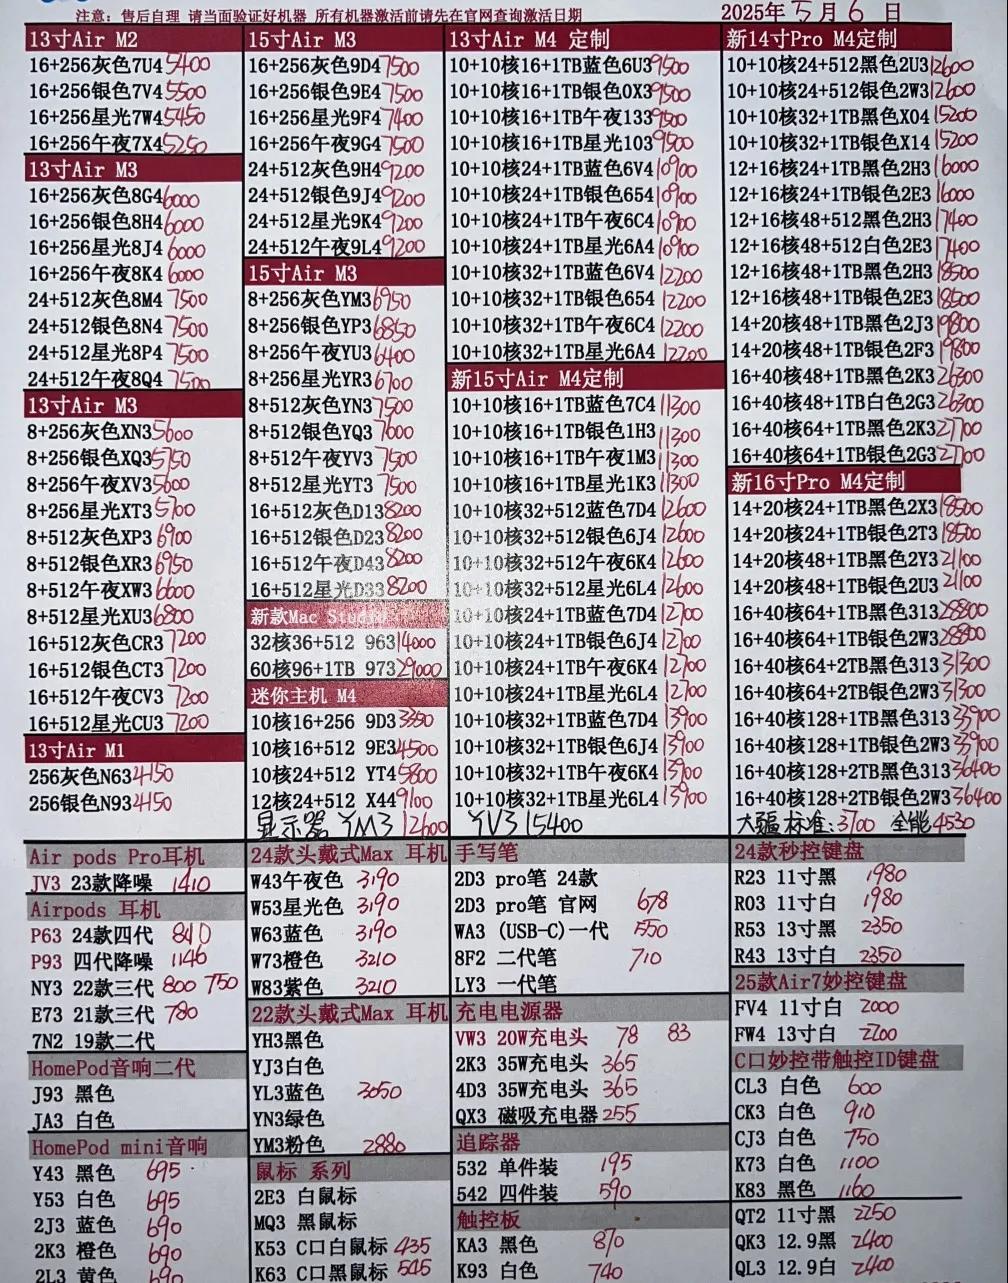 注意: 售后自理 请当面验证好机器 所有机器激活前请先在官网查询激活日期
2025年 5 月 6 日
13寸Air M2
16+256灰色7U4 5400
16+256银色7V4 5500
16+256星光7W4 5450
16+256午夜7X4 5250
13寸Air M3
16+256灰色8G4 6000
16+256银色8H4 6000
16+256星光8J4 6000
16+256午夜8K4 6000
24+512灰色8M4 7500
24+512银色8N4 7500
24+512星光8P4 7500
24+512午夜8Q4 7500
13寸Air M3
8+256灰色XN3 5600
8+256银色XQ3 5750
8+256午夜XV3 5600
8+256星光XT3 5700
8+512灰色XP3 6900
8+512银色XR3 6950
8+512午夜XW3 6600
8+512星光XU3 6800
16+512灰色CR3 7200
16+512银色CT3 7200
16+512午夜CV3 7200
16+512星光CU3 7200
13寸Air M1
256灰色N63 4150
256银色N93 4150
15寸Air M3
16+256灰色9D4 7500
16+256银色9E4 7500
16+256星光9F4 7400
16+256午夜9G4 7500
24+512灰色9H4 9200
24+512银色9J4 9200
24+512星光9K4 9200
24+512午夜9L4 9200
15寸Air M3
8+256灰色YM3 6950
8+256银色YP3 6850
8+256午夜YU3 6400
8+256星光YR3 6700
8+512灰色YN3 7500
8+512银色YQ3 7600
8+512午夜YV3 7500
8+512星光YT3 7500
16+512灰色D13 8200
16+512银色D23 8200
16+512午夜D43 8200
16+512星光D33 8200
新款Mac Studio
32核36+512 963 14000
60核96+1TB 973 29000
迷你主机 M4
10核16+256 9D3 3350
10核16+512 9E3 4500
10核24+512 YT4 5800
12核24+512 X44 9100
显示器 YM3 12600
13寸Air M4 定制
10+10核16+1TB蓝色6U3 9500
10+10核16+1TB银色0X3 9500
10+10核16+1TB午夜133 9500
10+10核16+1TB星光103 9500
10+10核24+1TB蓝色6V4 10900
10+10核24+1TB银色654 10900
10+10核24+1TB午夜6C4 10900
10+10核24+1TB星光6A4 10900
10+10核32+1TB蓝色6V4 12200
10+10核32+1TB银色654 12200
10+10核32+1TB午夜6C4 12200
10+10核32+1TB星光6A4 12200
新15寸Air M4定制
10+10核16+1TB蓝色7C4 11300
10+10核16+1TB银色1H3 11300
10+10核16+1TB午夜1M3 11300
10+10核16+1TB星光1K3 11300
10+10核32+512蓝色7D4 12600
10+10核32+512银色6J4 12600
10+10核32+512午夜6K4 12600
10+10核32+512星光6L4 12600
10+10核24+1TB蓝色7D4 12700
10+10核24+1TB银色6J4 12700
10+10核24+1TB午夜6K4 12700
10+10核24+1TB星光6L4 12700
10+10核32+1TB蓝色7D4 13900
10+10核32+1TB银色6J4 13900
10+10核32+1TB午夜6K4 13900
10+10核32+1TB星光6L4 13900
YV3 15400
新14寸Pro M4定制
10+10核24+512黑色2U3 12600
10+10核24+512银色2W3 12600
10+10核32+1TB黑色X04 15200
10+10核32+1TB银色X14 15200
12+16核24+1TB黑色2H3 16000
12+16核24+1TB银色2E3 16000
12+16核48+512黑色2H3 17400
12+16核48+512白色2E3 17400
12+16核48+1TB黑色2H3 18500
12+16核48+1TB银色2E3 18500
14+20核48+1TB黑色2J3 19800
14+20核48+1TB银色2F3 19800
16+40核48+1TB黑色2K3 26300
16+40核48+1TB白色2G3 26300
16+40核64+1TB黑色2K3 27700
16+40核64+1TB银色2G3 27700
新16寸Pro M4定制
14+20核24+1TB黑色2X3 18500
14+20核24+1TB银色2T3 18500
14+20核48+1TB黑色2Y3 21100
14+20核48+1TB银色2U3 21100
16+40核64+1TB黑色313 28800
16+40核64+1TB银色2W3 28900
16+40核64+2TB黑色313 31300
16+40核64+2TB银色2W3 31300
16+40核128+1TB黑色313 33900
16+40核128+1TB银色2W3 33900
16+40核128+2TB黑色313 36400
16+40核128+2TB银色2W3 36400
大疆 标准: 3700 全能 4530
Air pods Pro耳机
JV3 23款降噪 1410
Airpods 耳机
P63 24款四代 840
P93 四代降噪 1146
NY3 22款三代 800 750
E73 21款三代 780
7N2 19款二代
HomePod音响二代
J93 黑色
JA3 白色
HomePod mini音响
Y43 黑色 695
Y53 白色 695
2J3 蓝色 690
2K3 橙色 690
2L3 黄色 690
24款头戴式Max 耳机
W43午夜色 3190
W53星光色 3190
W63蓝色 3190
W73橙色 3210
W83紫色 3210
22款头戴式Max 耳机
YH3黑色
YJ3白色
YL3蓝色 3050
YN3绿色
YM3粉色 2880
鼠标 系列
2E3 白鼠标
MQ3 黑鼠标
K53 C口白鼠标 435
K63 C口黑鼠标 545
手写笔
2D3 pro笔 24款
2D3 pro笔 官网 678
WA3 (USB-C)一代 550
8F2 二代笔 710
LY3 一代笔
充电电源器
VW3 20W充电头 78 83
2K3 35W充电头 365
4D3 35W充电头 365
QX3 磁吸充电器 255
追踪器
532 单件装 195
542 四件装 590
触控板
KA3 黑色 870
K93 白色 740
24款秒控键盘
R23 11寸黑 1980
R03 11寸白 1980
R53 13寸黑 2350
R43 13寸白 2350
25款Air7妙控键盘
FV4 11寸白 2000
FW4 13寸白 2200
C口妙控带触控ID键盘
CL3 白色 600
CK3 白色 910
CJ3 白色 750
K73 白色 1100
K83 黑色 1160
QT2 11寸黑 2250
QK3 12.9黑 2400
QL3 12.9白 2400